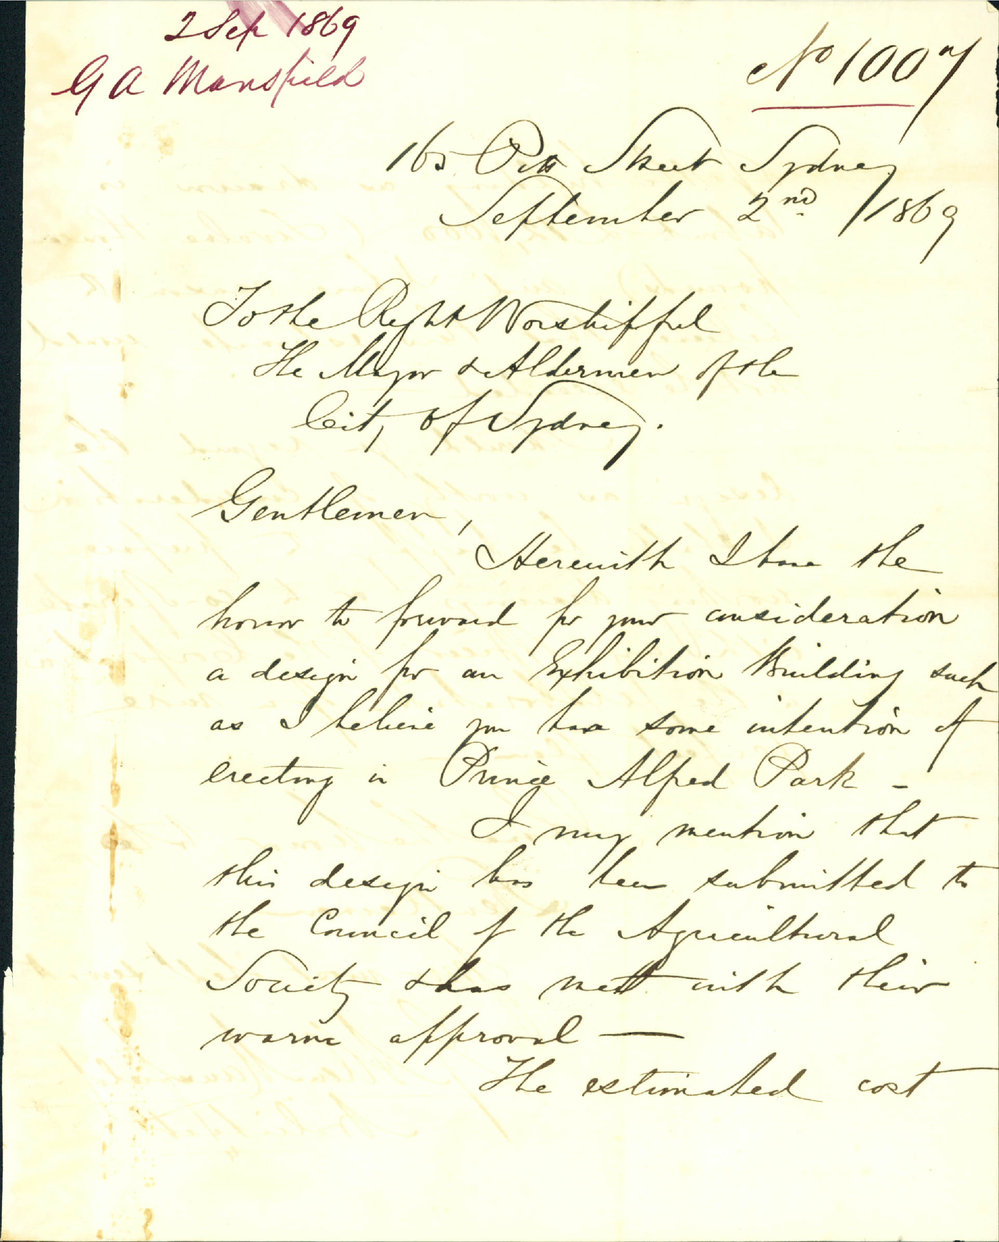 2 Sep 1869
G A Mansfield
No 1007
165 Pitt Street Sydney
September 2nd /1869
To the Right Worshipful
The Mayor & Aldermen of the
City of Sydney.
Gentlemen,
Herewith I have the
honor to forward for your consideration
a design for an Exhibition Building such
as I believe you have some intention of
erecting in Prince Alfred Park –
I may mention that
this design has been submitted to
the Council of the Agricultural
Society & has met with their
warm approval —
The estimated cost